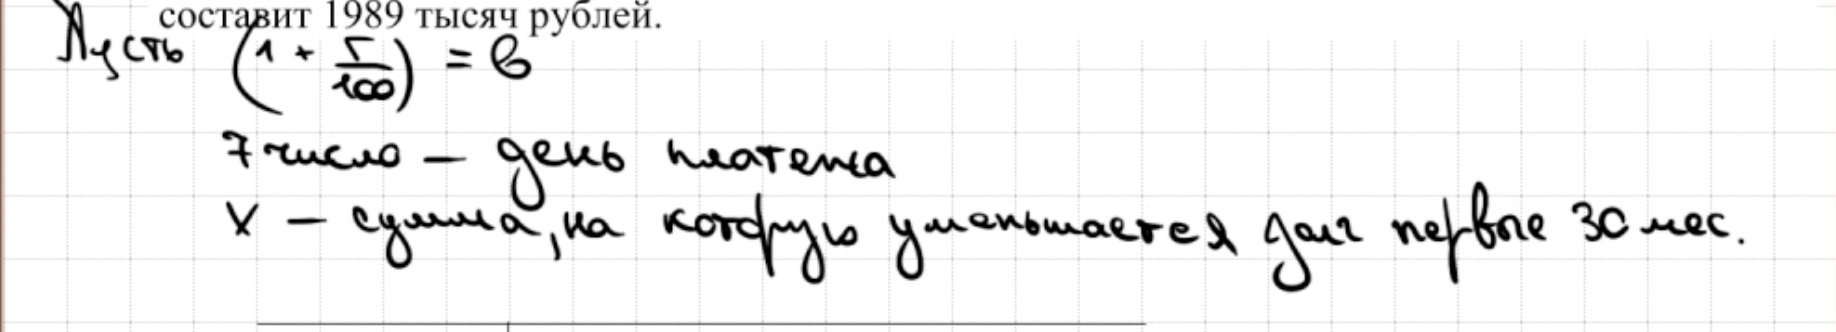 составит 1989 тысяч рублей.
Пусть (1 + r/100) = b
7 число – день платежа
X – сумма, на которую уменьшается долг первые 30 мес.